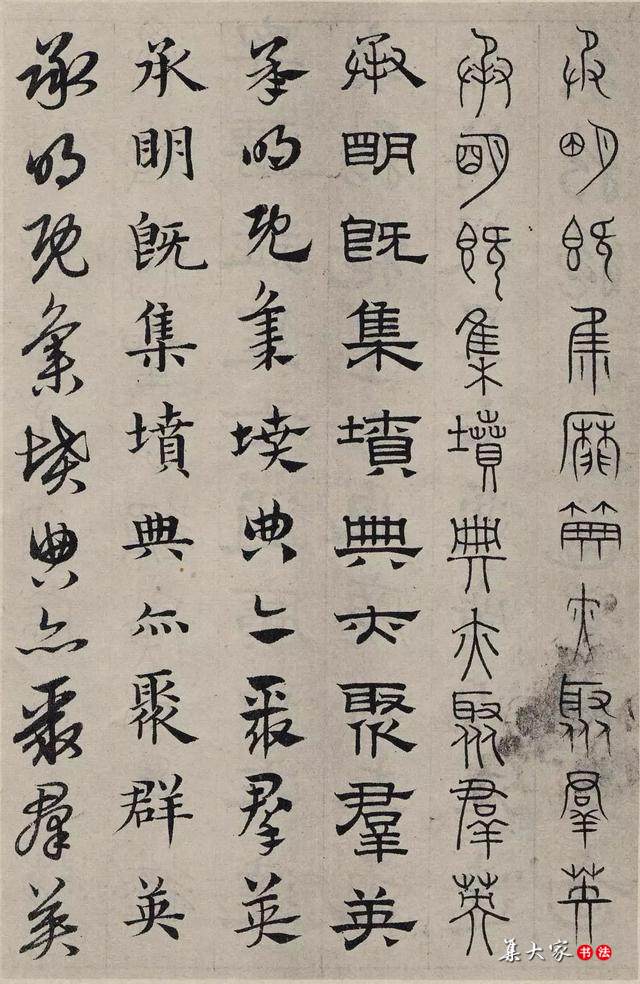 承明既集墳典亦聚群英
承明既集墳典亦聚羣英
承明既集墳典亦聚羣英
承明既集墳典亦聚羣英
承明既集墳典亦聚群英
承明既集墳典亦聚羣英
集大家书法